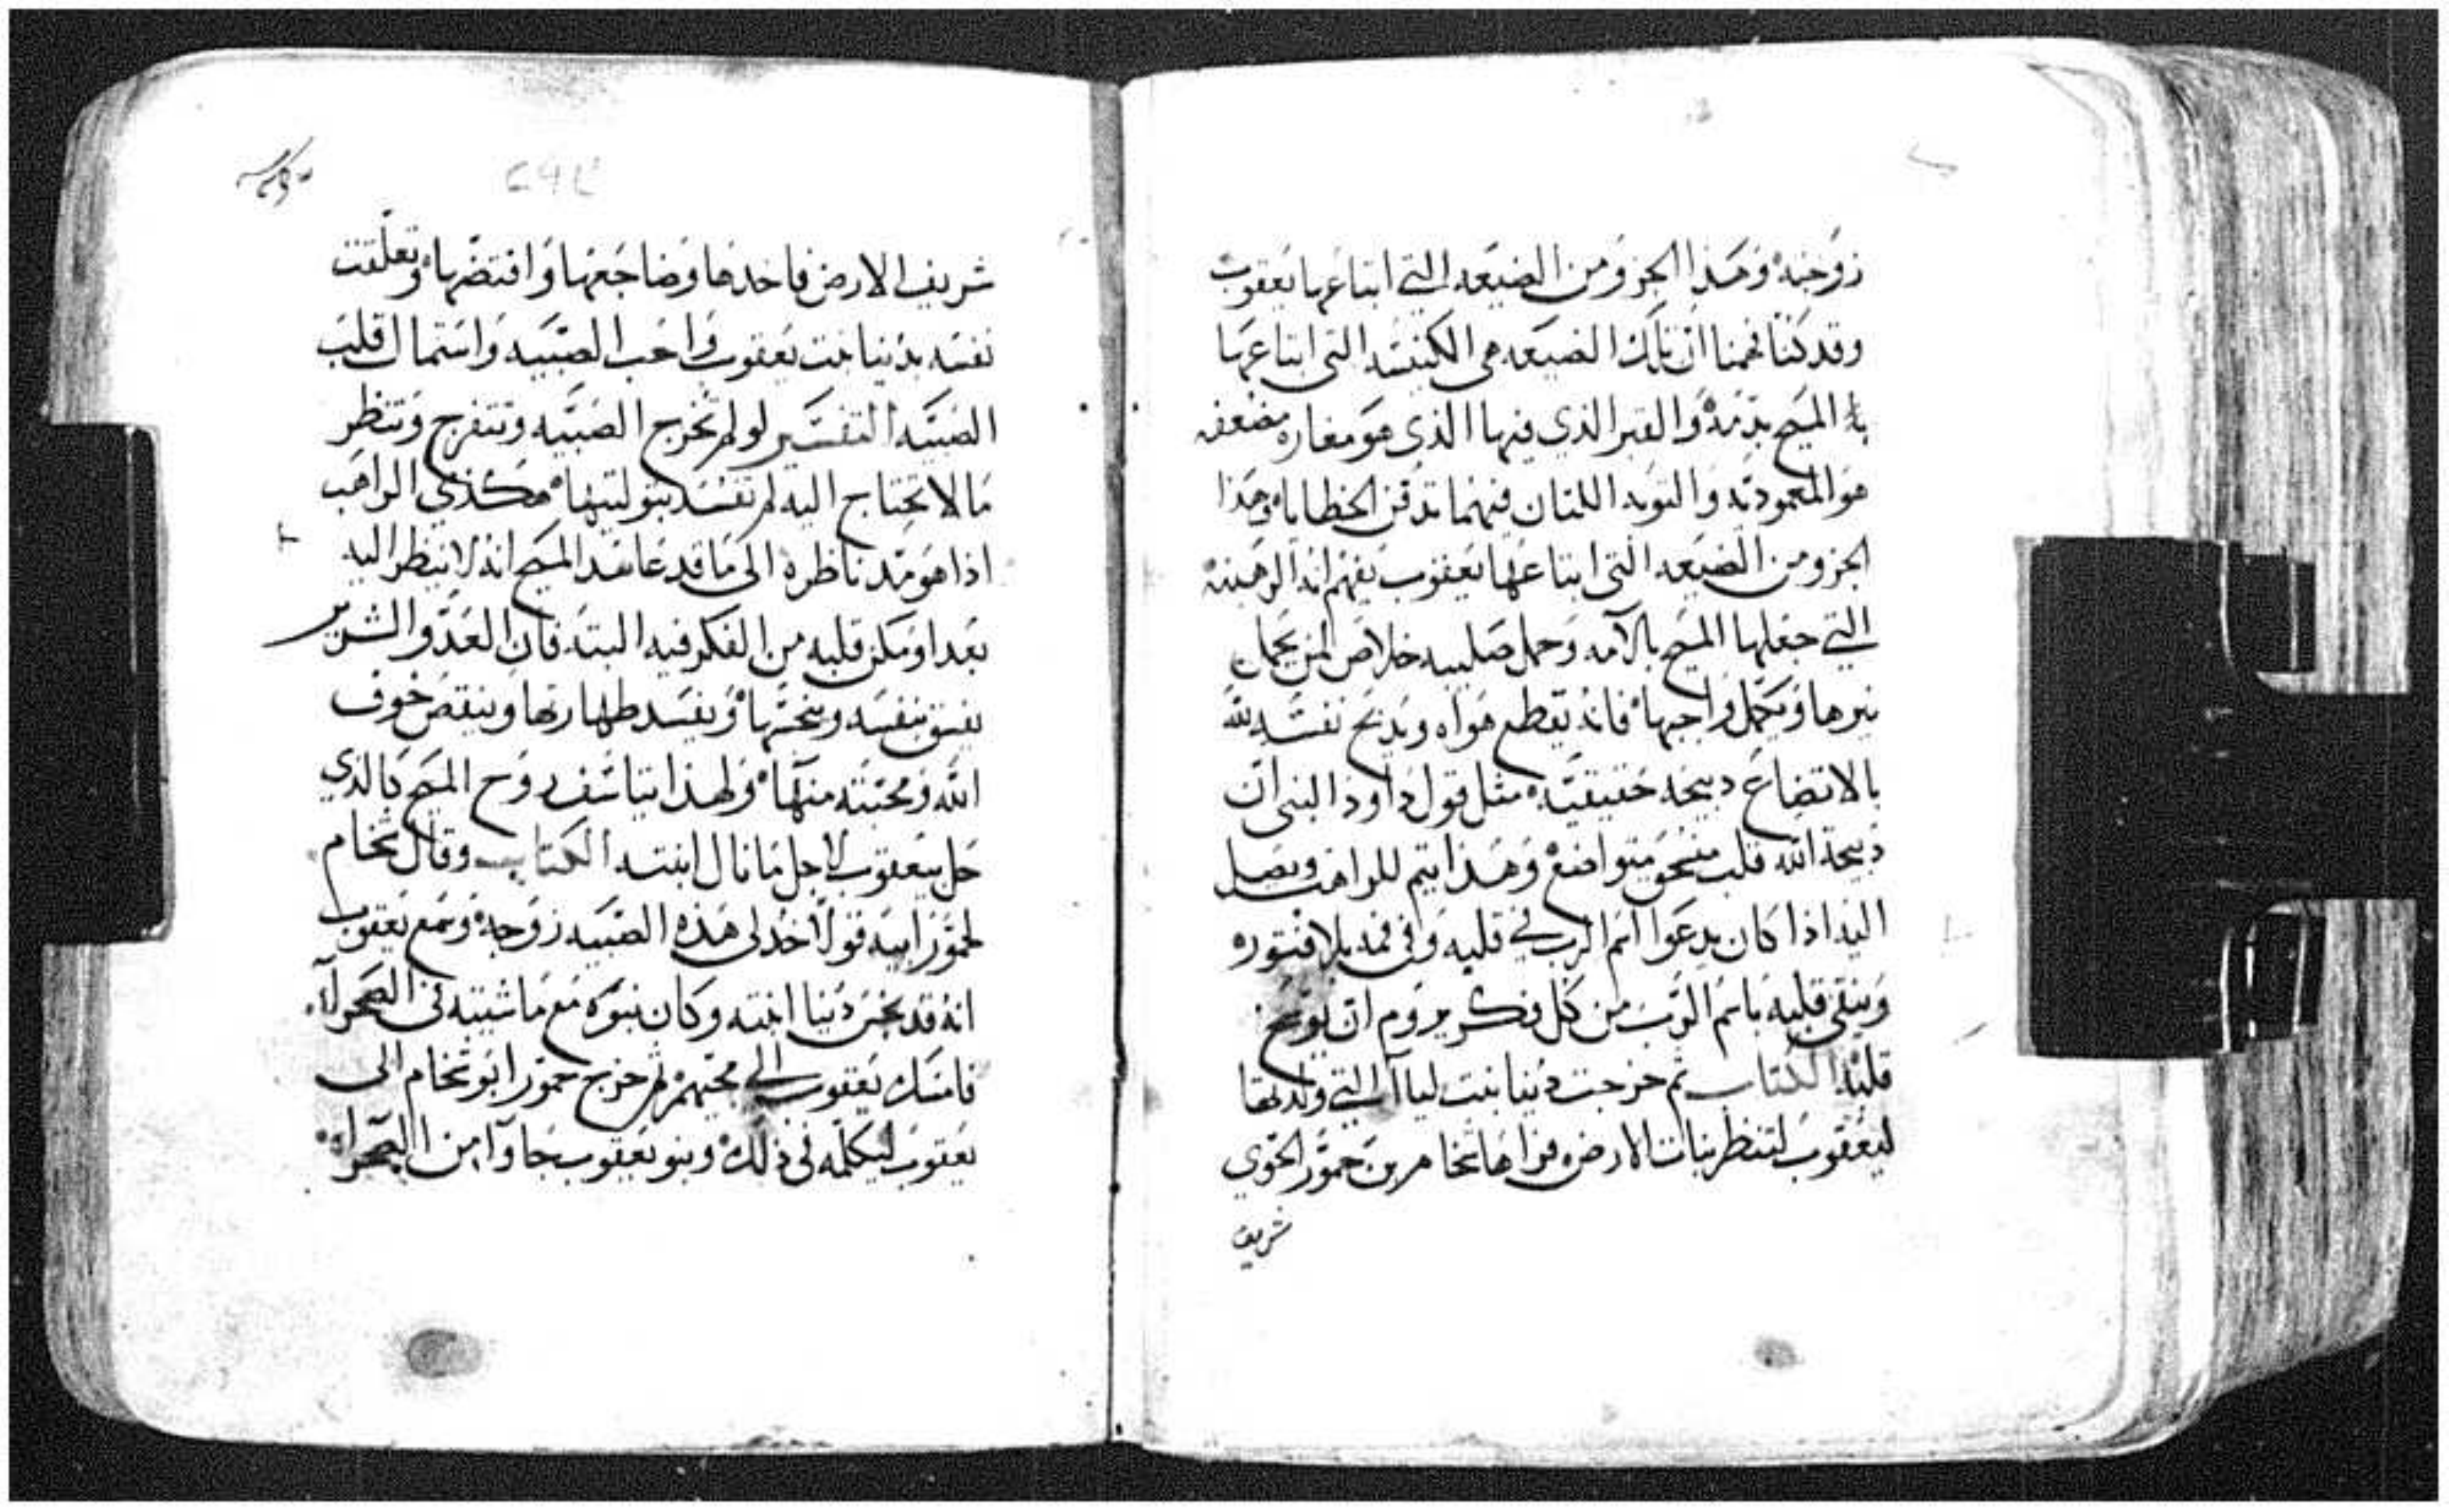 زوجته وهذا الجزو من الضيعه التي ابتاعها يعقوب
وقد كنا فهمنا ان تلك الضيعه هي الكنيسه التي ابتاعها
المسيح بدمه والقبر الذي فيها الذي هو مغاره مضعفه
هو المعموديه والتوبه اللتان فيهما تدفن الخطايا وهذا
الجزو من الضيعه التي ابتاعها يعقوب يفهم انه الرهبنه
التي جعلها المسيح بالامه وحمل صليبه خلاص لمن يحمل
نيرها ويكمل واجبها فانه يقطع هواه ويدبح نفسه لله
بالاتضاع دبيحه حقيقيه مثل قول داوود النبي ان
دبيحة الله قلب منسحق متواضع وهذا يتم للراهب ويصل
اليه اذا كان يدعوا اسم الرب في قلبه وفي فمه بلا فتوره
وينقي قلبه باسم الرب من كل فكر يروم ان يوسخ
قلبه الكتاب ثم خرجت دينا بنت لياا التي ولدتها
ليعقوب لتنظر بنات الارض فراها شخام بن حمور الحوي
شريف
شريف الارض فاخدها وضاجعها وافتضها وتعلقت
نفسه بدينا بنت يعقوب واحب الصبيه واستمال قلب
الصبيه التفسير لو لم تخرج الصبيه وتتفرج وتنظر
ما لا تحتاج اليه لم تفسد بتوليتها هكذي الراهب
اذا هو مد ناظره الى ما قد عاهد المسيح انه لا ينظر اليه
بعدا ومكن قلبه من الفكر فيه البته فان العدو الشرير
يفسق بنفسه وينجسها ويفسد طهارتها وينقص خوف
الله ومحبته منها ولهذا يتاسف روح المسيح بالذي
حل بيعقوب لاجل ما نال ابنته الكتاب وقال شخام
لحمور ابيه قولا خد لي هذه الصبيه زوجه وسمع يعقوب
انه قد نجس دينا ابنته وكان بنوه مع ماشيته في الصحراء
فامسك يعقوب الى مجيهم ثم خرج حمور ابو شخام الى
يعقوب ليكلمه في ذلك وبنو يعقوب جاوا من الصحراء